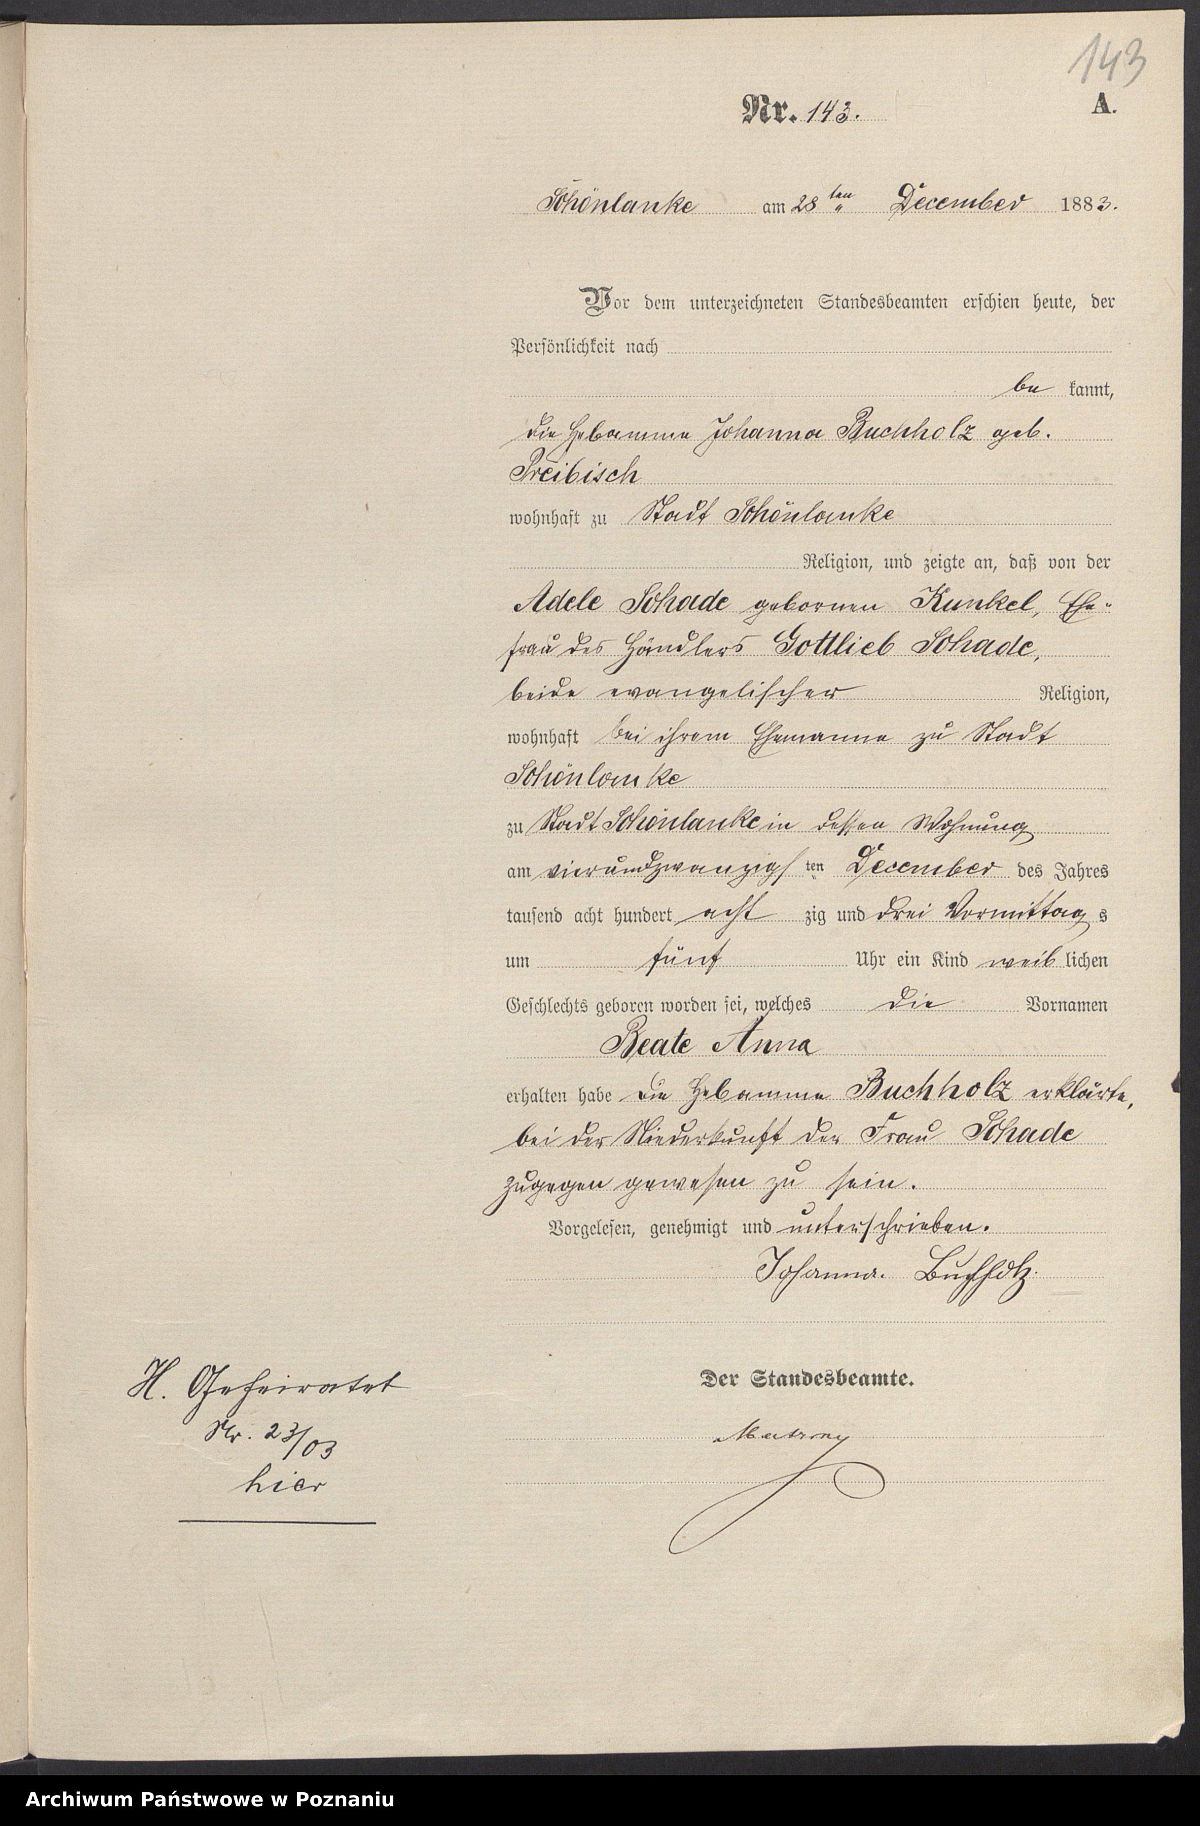 143
Nr. 143. A.
Schönlanke am 28ten December 1883.
Vor dem unterzeichneten Standesbeamten erschien heute, der
Persönlichkeit nach
be kannt,
die Hebamme Johanna Buchholz geb.
Preibisch
wohnhaft zu Stadt Schönlanke
Religion, und zeigte an, daß von der
Adele Schade gebornen Kunkel, Ehe-
frau des Händlers Gottlieb Schade,
beide evangelischer Religion,
wohnhaft bei ihrem Ehemanne zu Stadt
Schönlanke
zu Stadt Schönlanke in dessen Wohnung
am vierundzwanzigsten December des Jahres
tausend acht hundert acht zig und drei Vormittag s
um fünf Uhr ein Kind weib lichen
Geschlechts geboren worden sei, welches die Vornamen
Beate Anna
erhalten habe die Hebamme Buchholz erklärte,
bei der Niederkunft der Frau Schade
zugegen gewesen zu sein.
Vorgelesen, genehmigt und unterschrieben.
Johanna. Buchholz.
Der Standesbeamte.
H. Geheiratet
Nr. 23/03
hier
Archiwum Państwowe w Poznaniu